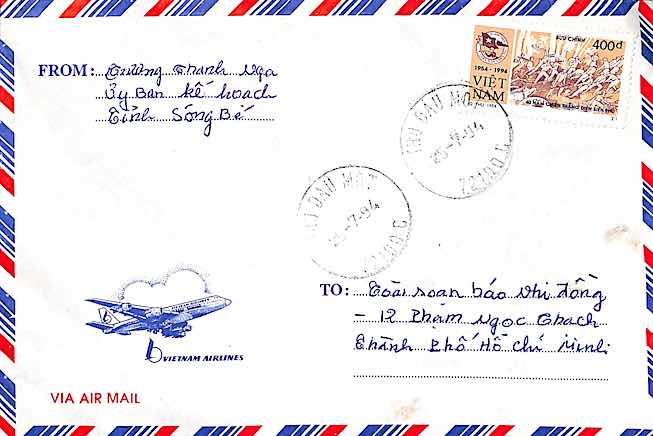 FROM: Trương Thanh Nga
Ủy Ban kế hoạch
Tỉnh Sông Bé
BƯU CHÍNH
400đ
1954 - 1994
VIỆT
NAM
40 NĂM CHIẾN THẮNG ĐIỆN BIÊN PHỦ
THỦ DẦU MỘT
25-7-94
72100 C
THỦ DẦU MỘT
25-7-94
72100 C
TO: Toài soạn báo Nhi đồng
- 12 Phạm Ngọc Thạch
Thành Phố Hồ Chí Minh
VIETNAM AIRLINES
VIA AIR MAIL